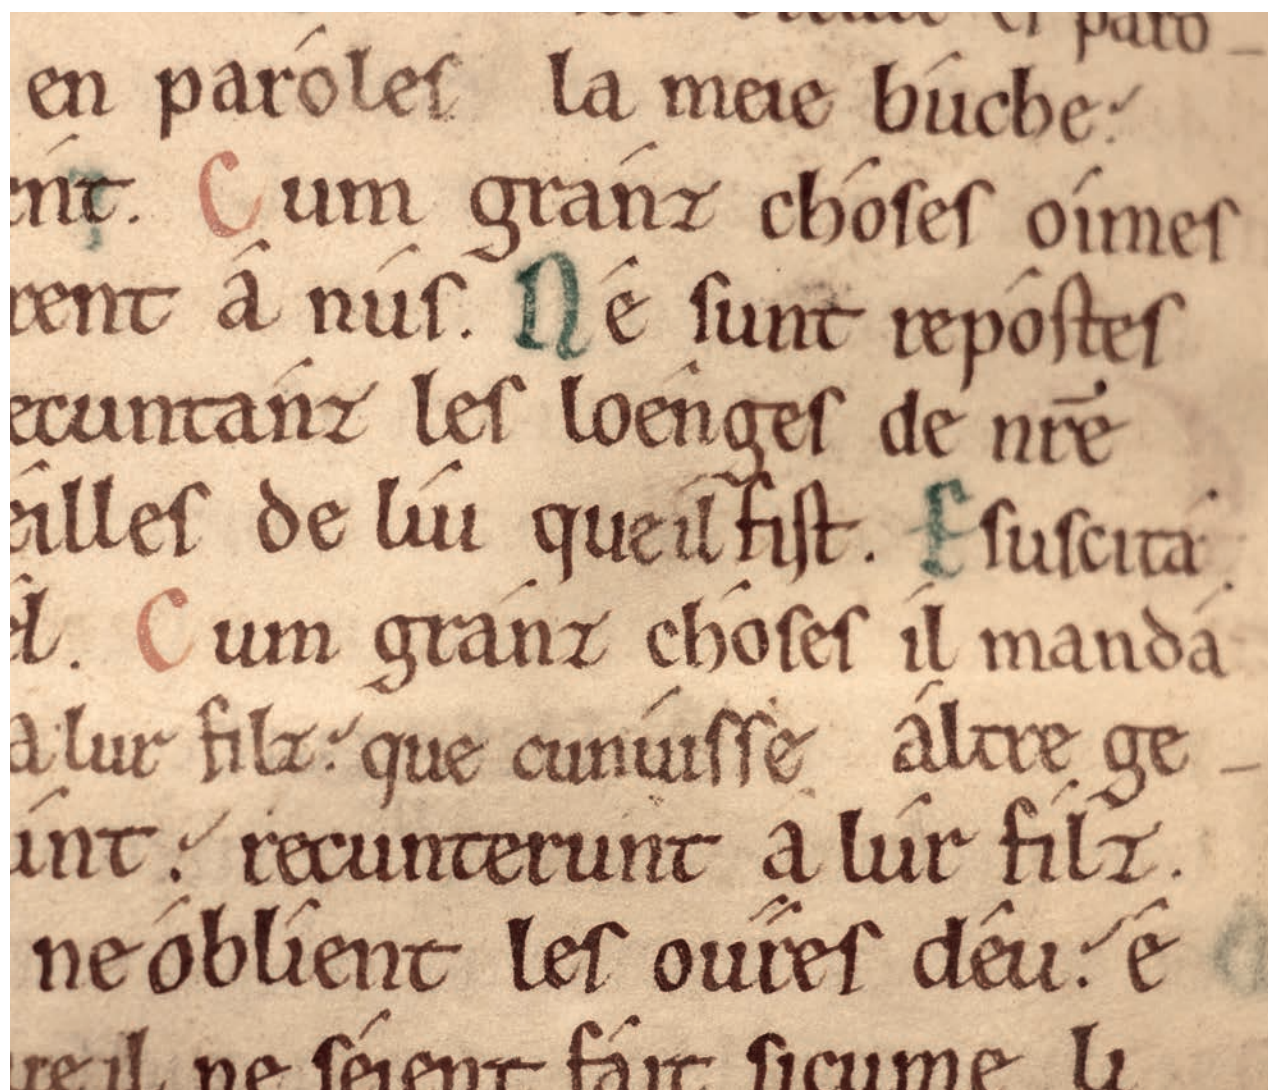 paro-
en paróles la meie búche:
ént. Cum gránz chóses oímes
rent á nús. Né sunt repóstes
ecuntánz les loénges de nr̄e
eilles de lúi que il fist. E suscitá
el. Cum gránz chóses il mandá
a lur filz: que cunúisse áltre ge-
int: recunterunt á lúr fílz.
ne óblíent les ouŕes déu: é
re il ne séient fáit sicume li